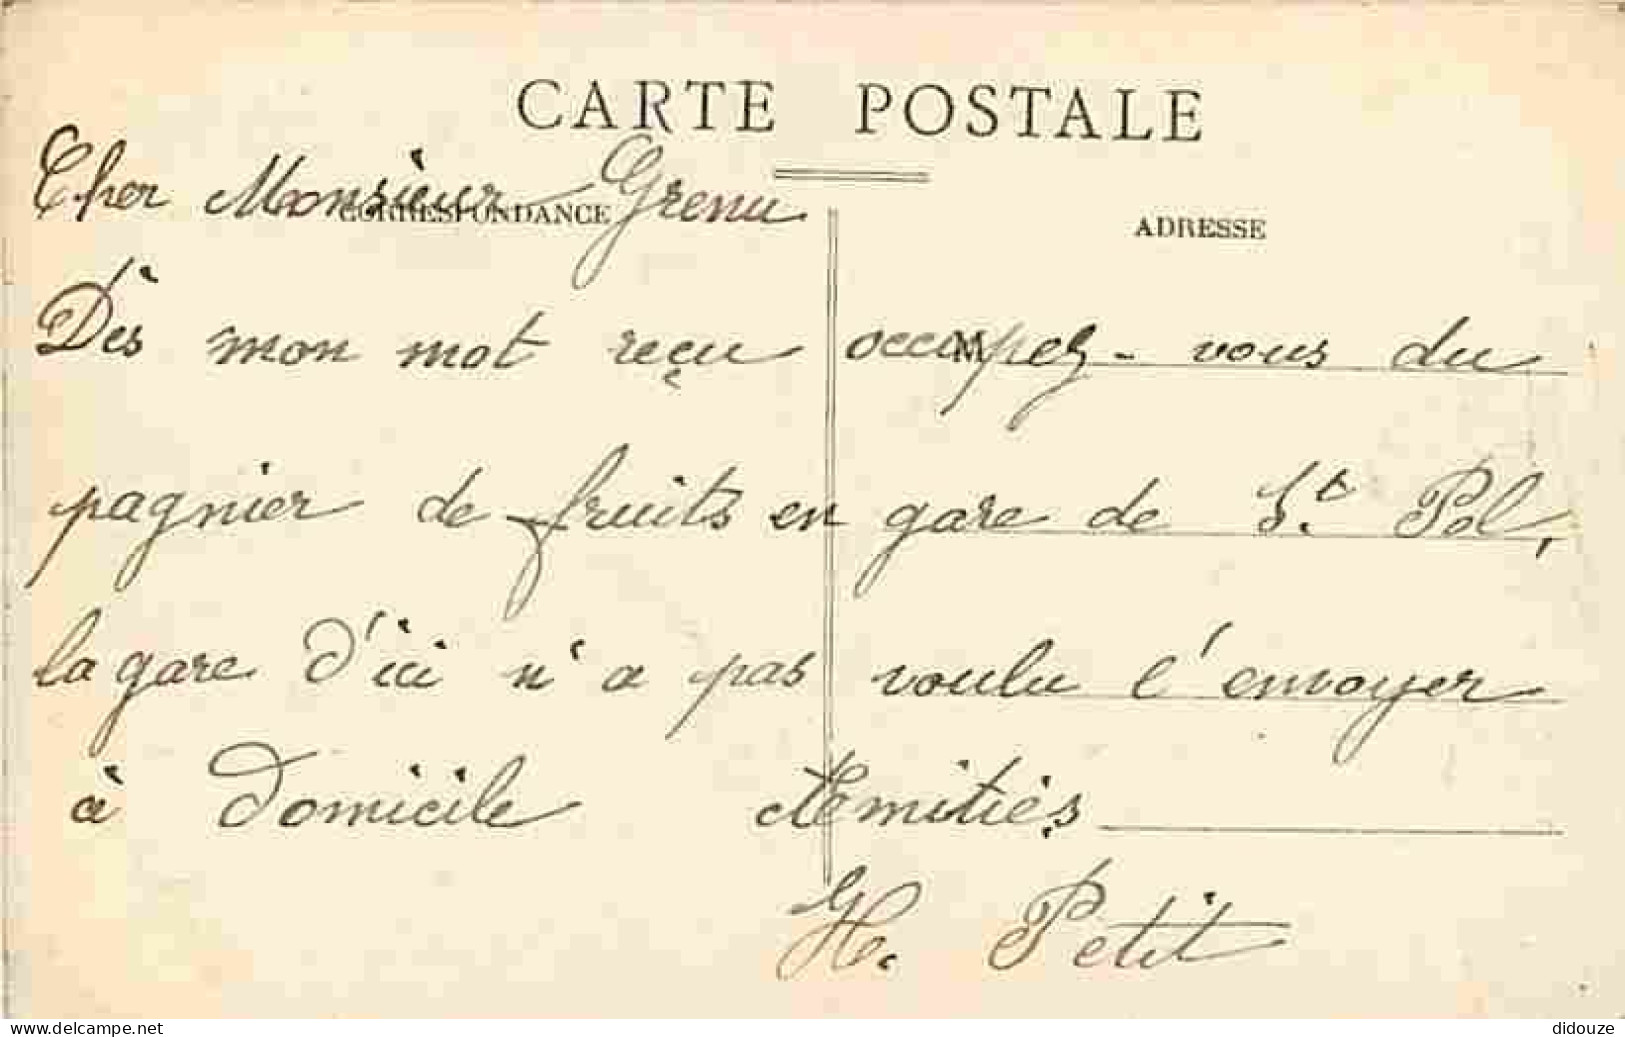 CARTE POSTALE
CORRESPONDANCE
ADRESSE
Cher Monsieur Grenu
Dès mon mot reçu occupez-vous du
pagnier de fruits en gare de St. Pol,
la gare d'ici n'a pas voulu l'envoyer
à Domicile Amitiés
H. Petit
www.delcampe.net
didouze